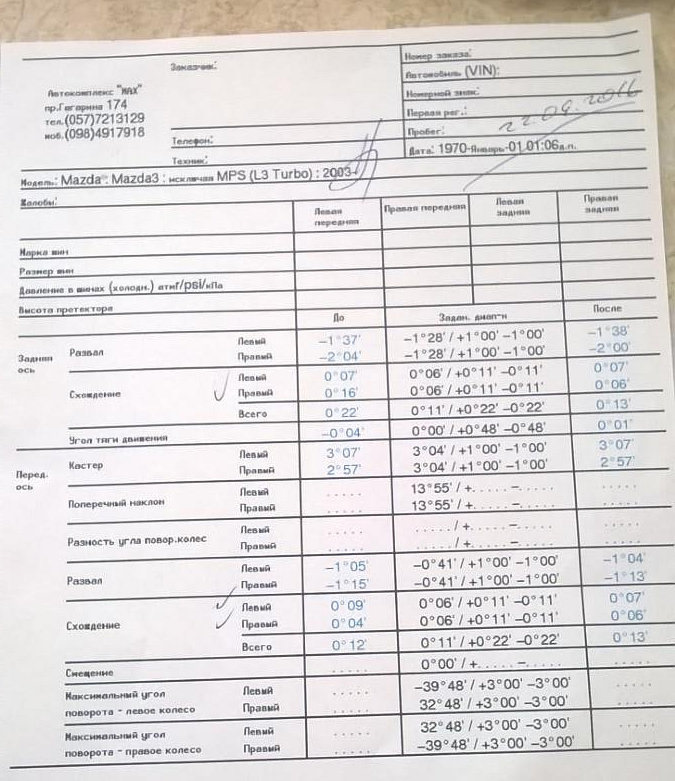 Заказчик:
Номер заказа:
Автомобиль (VIN):
Номерной знак:
Первая рег.:
Пробег:
22.09.2016
Дата: 1970-Январь-01 01:06д.п.
Автокомплекс "MAX"
пр.Гагарина 174
тел.(057)7213129
моб.(098)4917918
Телефон:
Техник:
Модель: Mazda : Mazda3 : исключая MPS (L3 Turbo) : 2003-
Жалобы:
Левая передняя Правая передняя Левая задняя Правая задняя
Марка шин
Размер шин
Давление в шинах (холодн.) атм/psi/кПа
Высота протектора
До Задан. диап-н После
Задняя ось
Развал Левый –1°37' –1°28' / +1°00' –1°00' –1°38'
Правый –2°04' –1°28' / +1°00' –1°00' –2°00'
Схождение Левый 0°07' 0°06' / +0°11' –0°11' 0°07'
Правый 0°16' 0°06' / +0°11' –0°11' 0°06'
Всего 0°22' 0°11' / +0°22' –0°22' 0°13'
Угол тяги движения –0°04' 0°00' / +0°48' –0°48' 0°01'
Перед. ось
Кастер Левый 3°07' 3°04' / +1°00' –1°00' 3°07'
Правый 2°57' 3°04' / +1°00' –1°00' 2°57'
Поперечный наклон Левый ..... 13°55' / +.....–..... .....
Правый ..... 13°55' / +.....–..... .....
Разность угла повор.колес Левый ..... ...../ +.....–..... .....
Правый ..... ...../ +.....–..... .....
Развал Левый –1°05' –0°41' / +1°00' –1°00' –1°04'
Правый –1°15' –0°41' / +1°00' –1°00' –1°13'
Схождение Левый 0°09' 0°06' / +0°11' –0°11' 0°07'
Правый 0°04' 0°06' / +0°11' –0°11' 0°06'
Всего 0°12' 0°11' / +0°22' –0°22' 0°13'
Смещение ..... 0°00' / +.....–..... .....
Максимальный угол Левый ..... –39°48' / +3°00' –3°00' .....
поворота - левое колесо Правый ..... 32°48' / +3°00' –3°00' .....
Максимальный угол Левый ..... 32°48' / +3°00' –3°00' .....
поворота - правое колесо Правый ..... –39°48' / +3°00' –3°00' .....